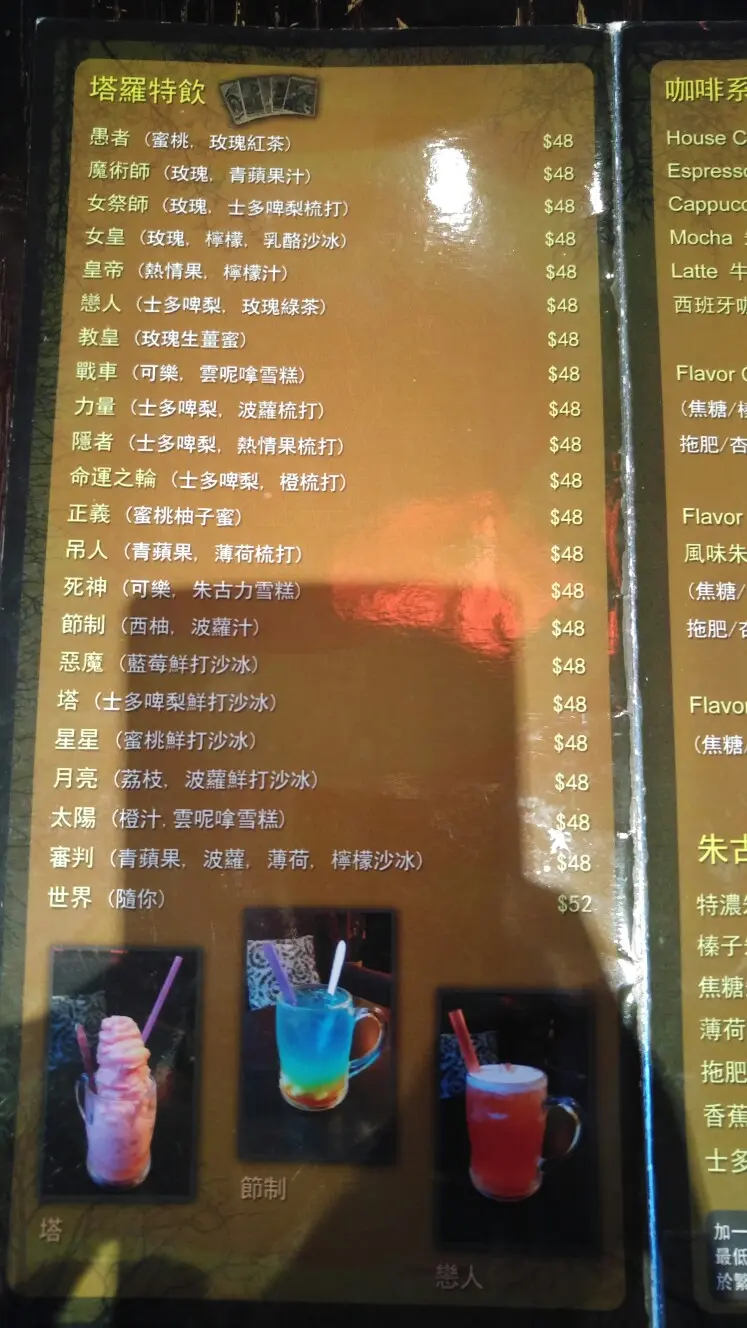 塔羅特飲
愚者 (蜜桃, 玫瑰紅茶) $48
魔術師 (玫瑰, 青蘋果汁) $48
女祭師 (玫瑰, 士多啤梨梳打) $48
女皇 (玫瑰, 檸檬, 乳酪沙冰) $48
皇帝 (熱情果, 檸檬汁) $48
戀人 (士多啤梨, 玫瑰綠茶) $48
教皇 (玫瑰生薑蜜) $48
戰車 (可樂, 雲呢嗱雪糕) $48
力量 (士多啤梨, 波蘿梳打) $48
隱者 (士多啤梨, 熱情果梳打) $48
命運之輪 (士多啤梨, 橙梳打) $48
正義 (蜜桃柚子蜜) $48
吊人 (青蘋果, 薄荷梳打) $48
死神 (可樂, 朱古力雪糕) $48
節制 (西柚, 波蘿汁) $48
惡魔 (藍莓鮮打沙冰) $48
塔 (士多啤梨鮮打沙冰) $48
星星 (蜜桃鮮打沙冰) $48
月亮 (荔枝, 波蘿鮮打沙冰) $48
太陽 (橙汁, 雲呢嗱雪糕) $48
審判 (青蘋果, 波蘿, 薄荷, 檸檬沙冰) $48
世界 (隨你) $52
塔
節制
戀人
咖啡系
House C
Espresso
Cappucc
Mocha
Latte 牛
西班牙咖
Flavor
(焦糖/
拖肥/杏
Flavor
風味朱
(焦糖/
拖肥/杏
Flavor
(焦糖/
朱古
特濃
榛子
焦糖
薄荷
拖肥
香蕉
士多
加一
最低
於繁